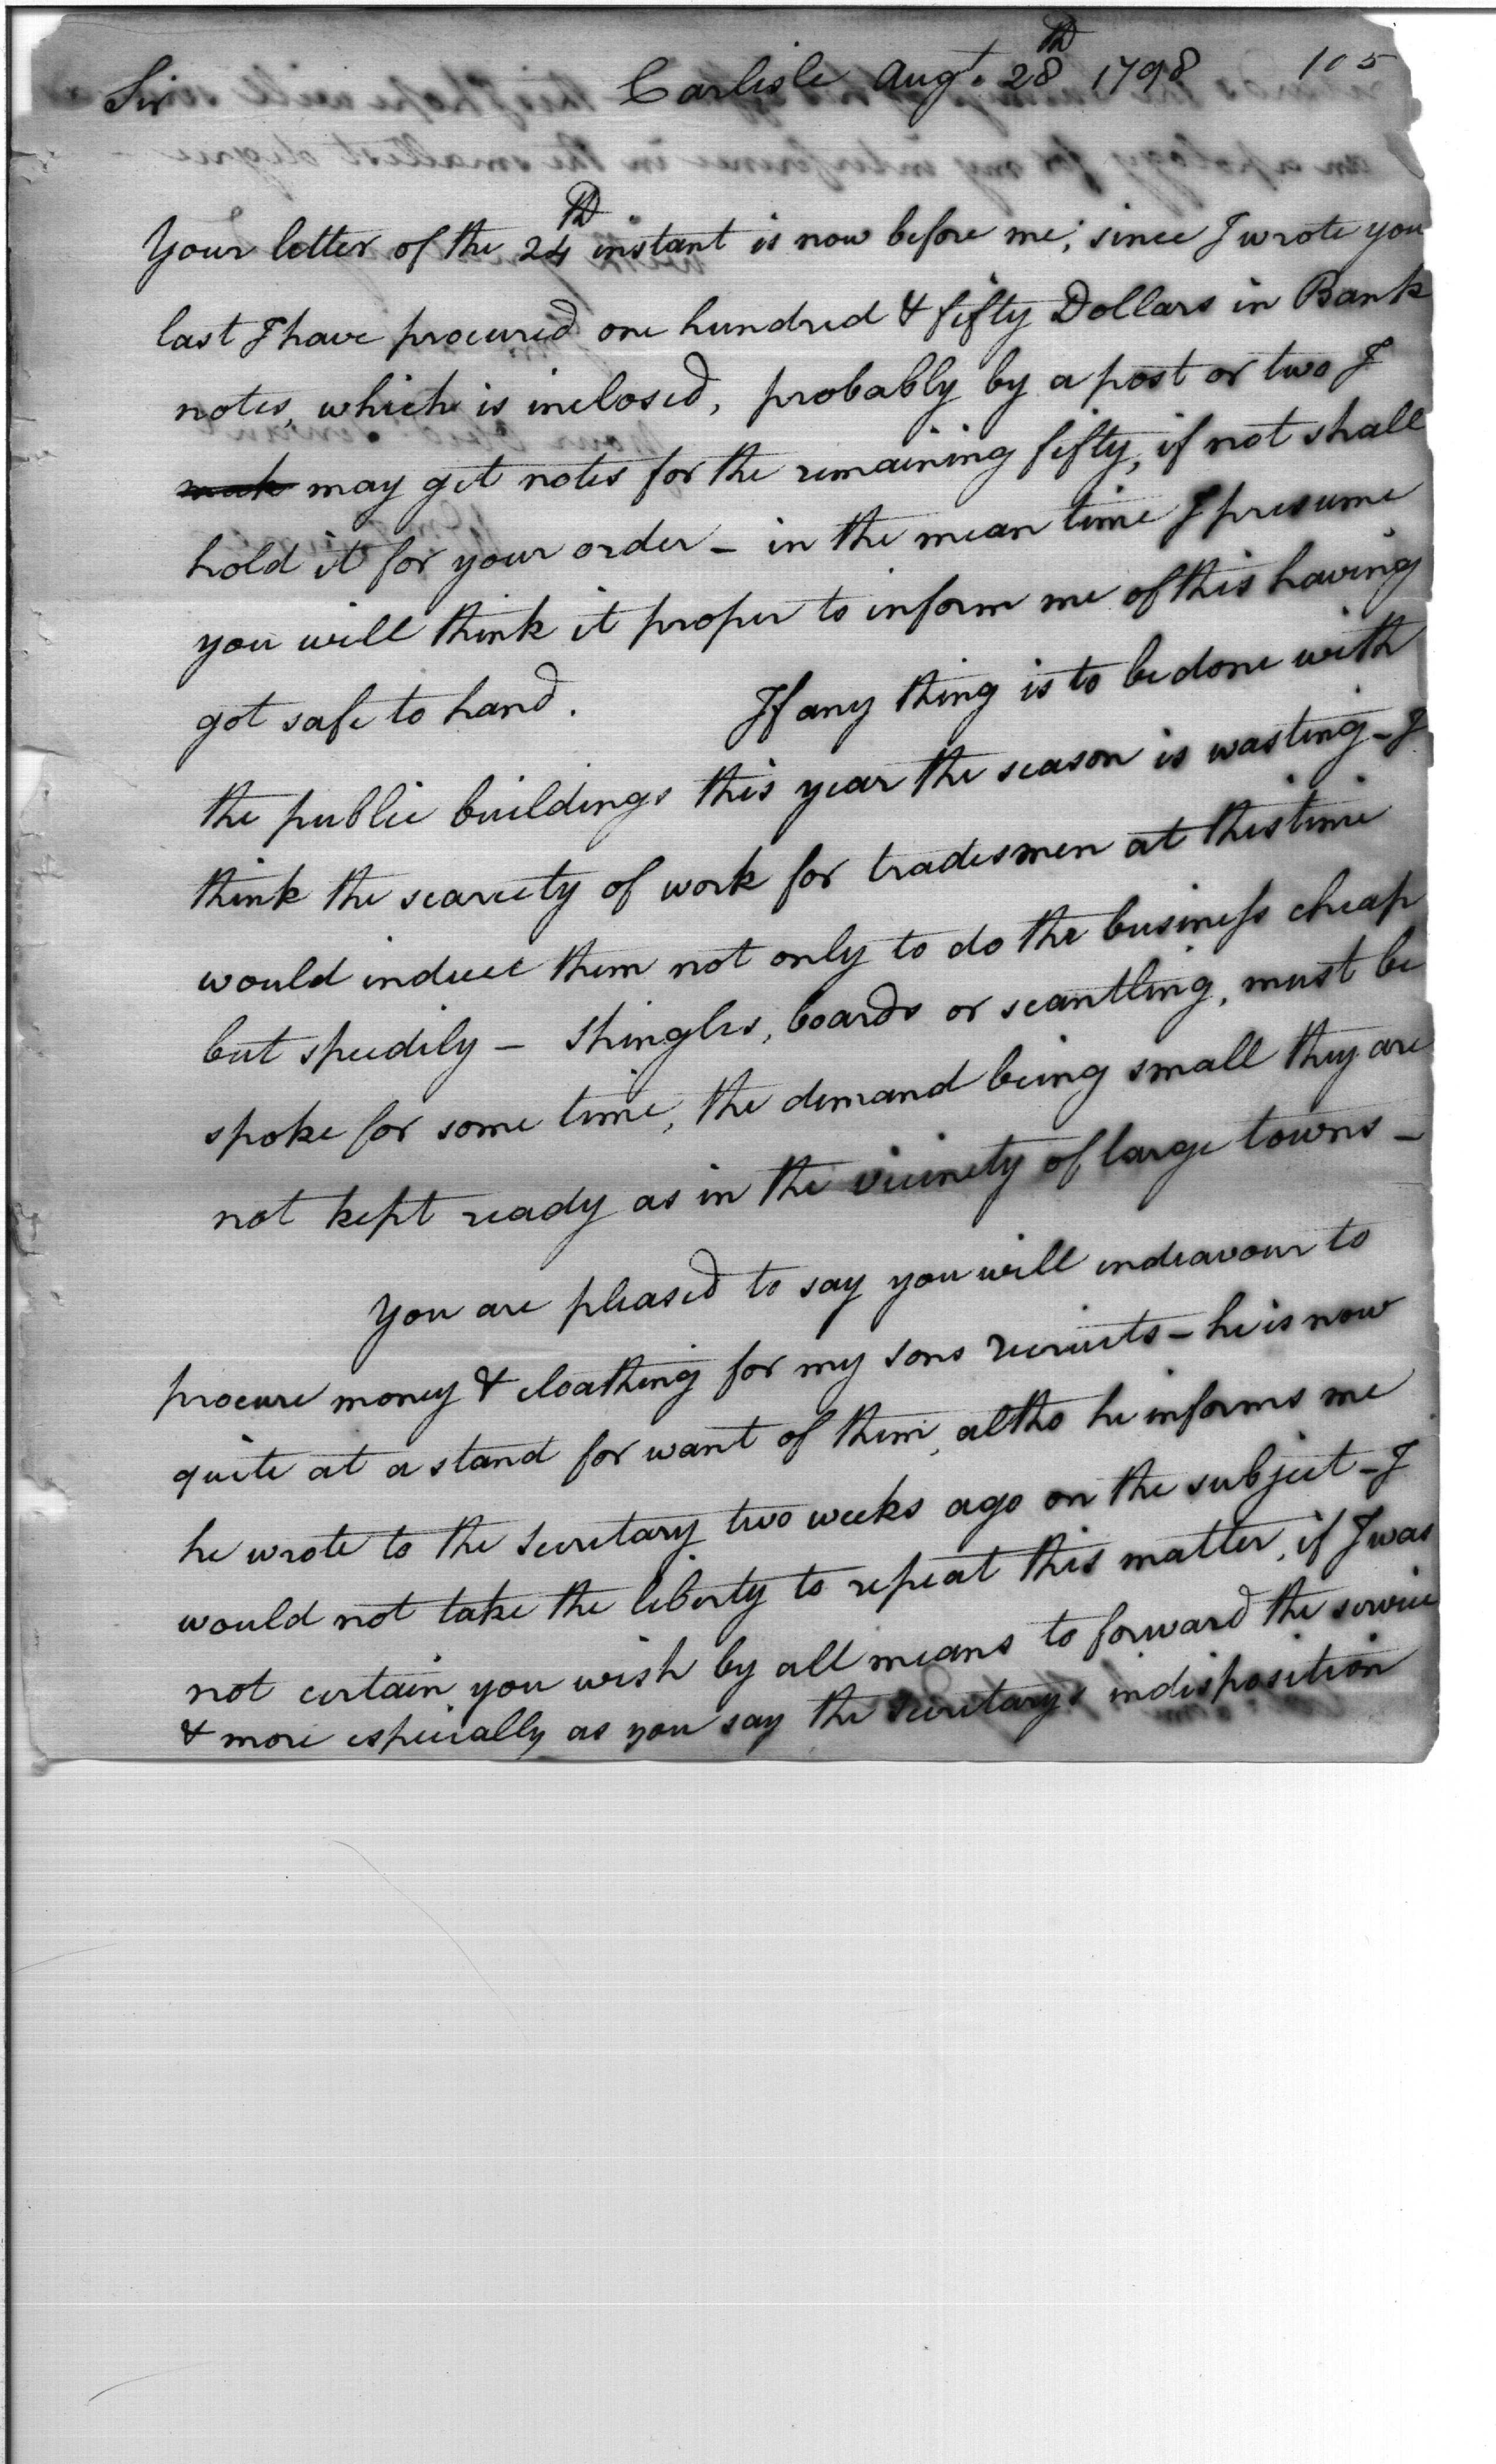 Sir Carlisle Augt. 28th 1798 105
Your letter of the 24th instant is now before me; since I wrote you
last I have procured one hundred & fifty Dollars in Bank
notes, which is inclosed, probably by a post or two I
may get notes for the remaining fifty, if not shall
hold it for your order – in the mean time I presume
you will think it proper to inform me of this having
got safe to hand. If any thing is to be done with
the public buildings this year the season is wasting – I
think the scarcity of work for tradesmen at this time
would induce them not only to do the business cheap
but speedily – Shingles, boards or scantling, must be
spoke for some time, the demand being small they are
not kept ready as in the vicinity of large towns –
You are pleased to say you will indeavour to
procure money & cloathing for my sons recruits – he is now
quite at a stand for want of them, altho he informs me
he wrote to the Secretary two weeks ago on the subject – I
would not take the liberty to repeat this matter, if I was
not certain you wish by all means to forward the service
& more especially as you say the Secretarys indisposition